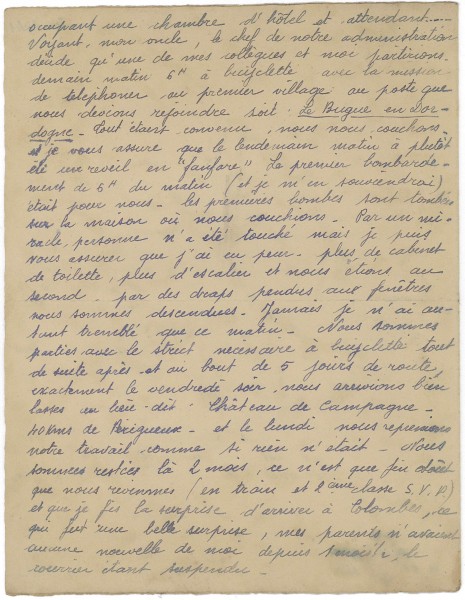 occupant une chambre d'hôtel et attendant.....
Voyant, mon oncle, le chef de notre administration
décide qu'une de mes collègues et moi partirions
demain matin 5H à bicyclette avec la mission
de telephoner au premier village au poste que
nous devions rejoindre soit. Le Bugue en Dor-
dogne - Tout étant convenu, nous nous couchons
et je vous assure que le lendemain matin à plutôt
été un reveil en "fanfare" Le premier bombarde-
ment de 5H du matin (et je m'en souviendrai)
était pour nous - les premières bombes sont tombées
sur la maison où nous couchions. Par un mi-
racle, personne n'a été touché mais je puis
vous assurer que j'ai eu peur - plus de cabinet
de toilette, plus d'escalier et nous étions au
second - par des draps pendus aux fenêtres
nous sommes descendues - Jamais je n'ai au-
tant tremblé que ce matin - Nous sommes
parties avec le strict nécessaire à bicyclette tout
de suite après - et au bout de 5 jours de route,
exactement le vendredi soir, nous arrivions bien
lasses en lieu-dit - Château de Campagne -
40 Kms de Périgueux - et le lundi nous reprenions
notre travail comme si rien n'était - Nous
sommes restées là 2 mois, ce n'est que fin Août
que nous revînmes (en train et 2ème classe S.V.P.)
et que je fis la surprise d'arriver à Colombes, ce
qui fut une belle surprise, mes parents n'avaient
aucune nouvelle de moi depuis 1 mois ½, le
courrier étant suspendu -